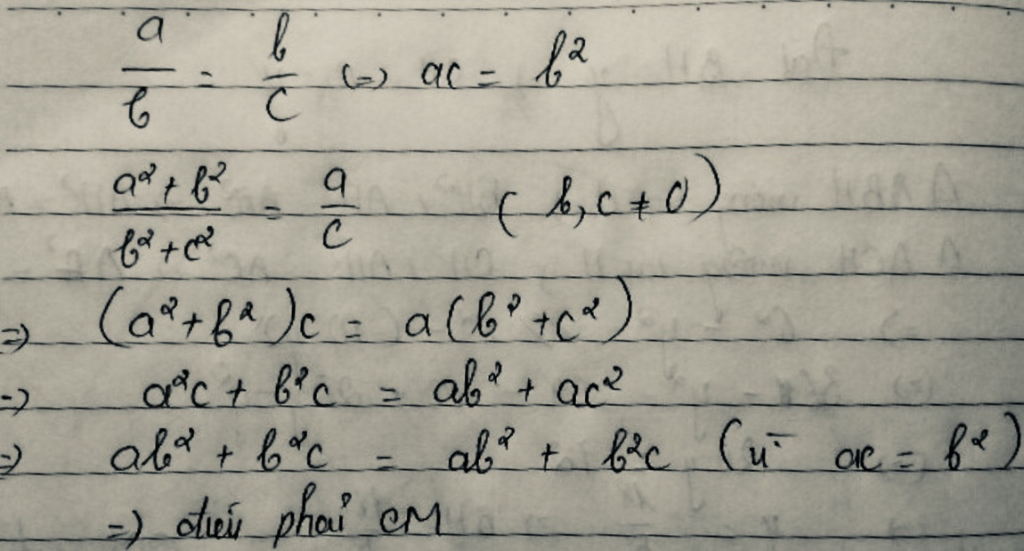 a/b = b/c (=) ac = b²
(a² + b²)/(b² + c²) = a/c ( b, c ≠ 0 )
=) (a² + b²)c = a(b² + c²)
=) a²c + b²c = ab² + ac²
=) ab² + b²c = ab² + b²c (vì ac = b²)
=) điều phải CM